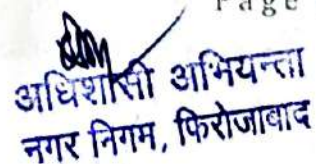 Page
अधिशासी अभियन्ता
नगर निगम, फिरोजाबाद